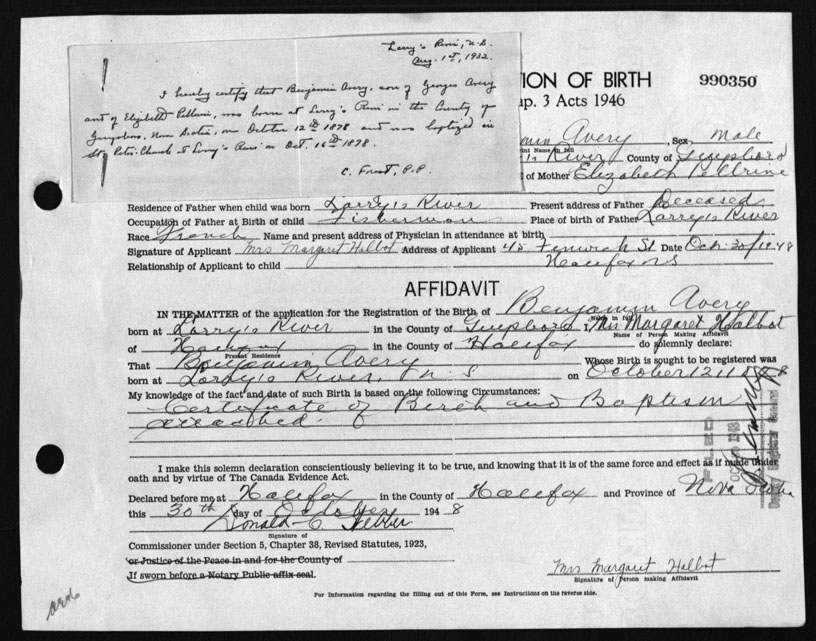 Larry's River, N.S.
Aug. 1st, 1932.
I hereby certify that Benjamin Avery, son of Georges Avery
and of Elizabeth Pellrine, was born at Larry's River in the County of
Guysboro, Nova Scotia, on October 12th 1878 and was baptized in
St. Peter's Church at Larry's River on Oct. 16th 1878.
C. Forest, P.P.
TION OF BIRTH 990350
ap. 3 Acts 1946
min Avery, Sex Male
Print Name in full
's River County of Guysboro
of Mother Elizabeth Pellrine
Residence of Father when child was born Larry's River Present address of Father Deceased
Occupation of Father at Birth of child Fisherman Place of birth of Father Larry's River
Race French Name and present address of Physician in attendance at birth
Signature of Applicant Mrs Margaret Halbot Address of Applicant 48 Fenwick St Date Oct. 30/1948
Relationship of Applicant to child Halifax NS
AFFIDAVIT
IN THE MATTER of the application for the Registration of the Birth, of Benjamin Avery
Name in full
born at Larry's River in the County of Guysboro I, Mrs Margaret Halbot
Name of Person Making Affidavit
of Halifax in the County of Halifax do solemnly declare:
Present Residence
That Benjamin Avery Whose Birth is sought to be registered was
born at Larry's River, N S on October 12 1878
My knowledge of the fact and date of such Birth is based on the following Circumstances:
Certificate of Birth and Baptism
attached.
I make this solemn declaration conscientiously believing it to be true, and knowing that it is of the same force and effect as if made under
oath and by virtue of The Canada Evidence Act.
Declared before me at Halifax in the County of Halifax and Province of Nova Scotia
this 30th day of October 1948
Donald C. Webber
Signature of
Commissioner under Section 5, Chapter 38, Revised Statutes, 1923,
or Justice of the Peace in and for the County of
If sworn before a Notary Public affix seal.
Mrs Margaret Halbot
Signature of Person making Affidavit
For Information regarding the filling out of this Form, see Instructions on the reverse side.
FILED
ord